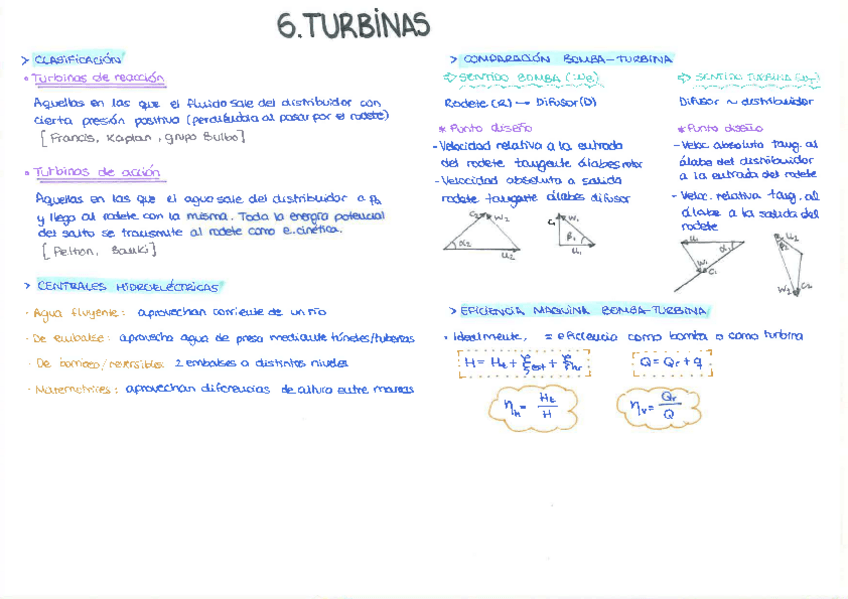 6. TURBINAS
> CLASIFICACIÓN
• Turbinas de reacción
Aquellas en las que el fluido sale del distribuidor con
cierta presión positiva (perdiéndola al pasar por el rodete)
[Francis, Kaplan, grupo Bulbo]
• Turbinas de acción
Aquellas en las que el agua sale del distribuidor a Pa
y llega al rodete con la misma. Toda la energía potencial
del salto se transmite al rodete como e. cinética.
[Pelton, Banki]
> CENTRALES HIDROELÉCTRICAS
· Agua fluyente: aprovechan corriente de un río
· De embalse: aprovecha agua de presa mediante túneles/tuberías
· De bombeo/reversibles: 2 embalses a distintos niveles
· Mareomotrices: aprovechan diferencias de altura entre mareas
> COMPARACIÓN BOMBA-TURBINA
SENTIDO BOMBA
Rodete (R) → Difusor (D)
* Punto diseño
- Velocidad relativa a la entrada
del rodete tangente álabes rotor
- Velocidad absoluta a salida
rodete tangente álabes difusor
C2 W2
α2
U2
C1 W1
β1
U1
SENTIDO TURBINA
Difusor ~ distribuidor
* Punto diseño
- Veloc. absoluta tang. al
álabe del distribuidor
a la entrada del rodete
- Veloc. relativa tang. al
álabe a la salida del
rodete
U1
α1
W1
C1
U2
β2
W2 C2
> EFICIENCIA MAQUINA BOMBA-TURBINA
• Idealmente, = eficiencia como bomba o como turbina
H = Ht + ξest + ξhr
Q = Qr + q
ηh = Ht / H
ηv = Qr / Q